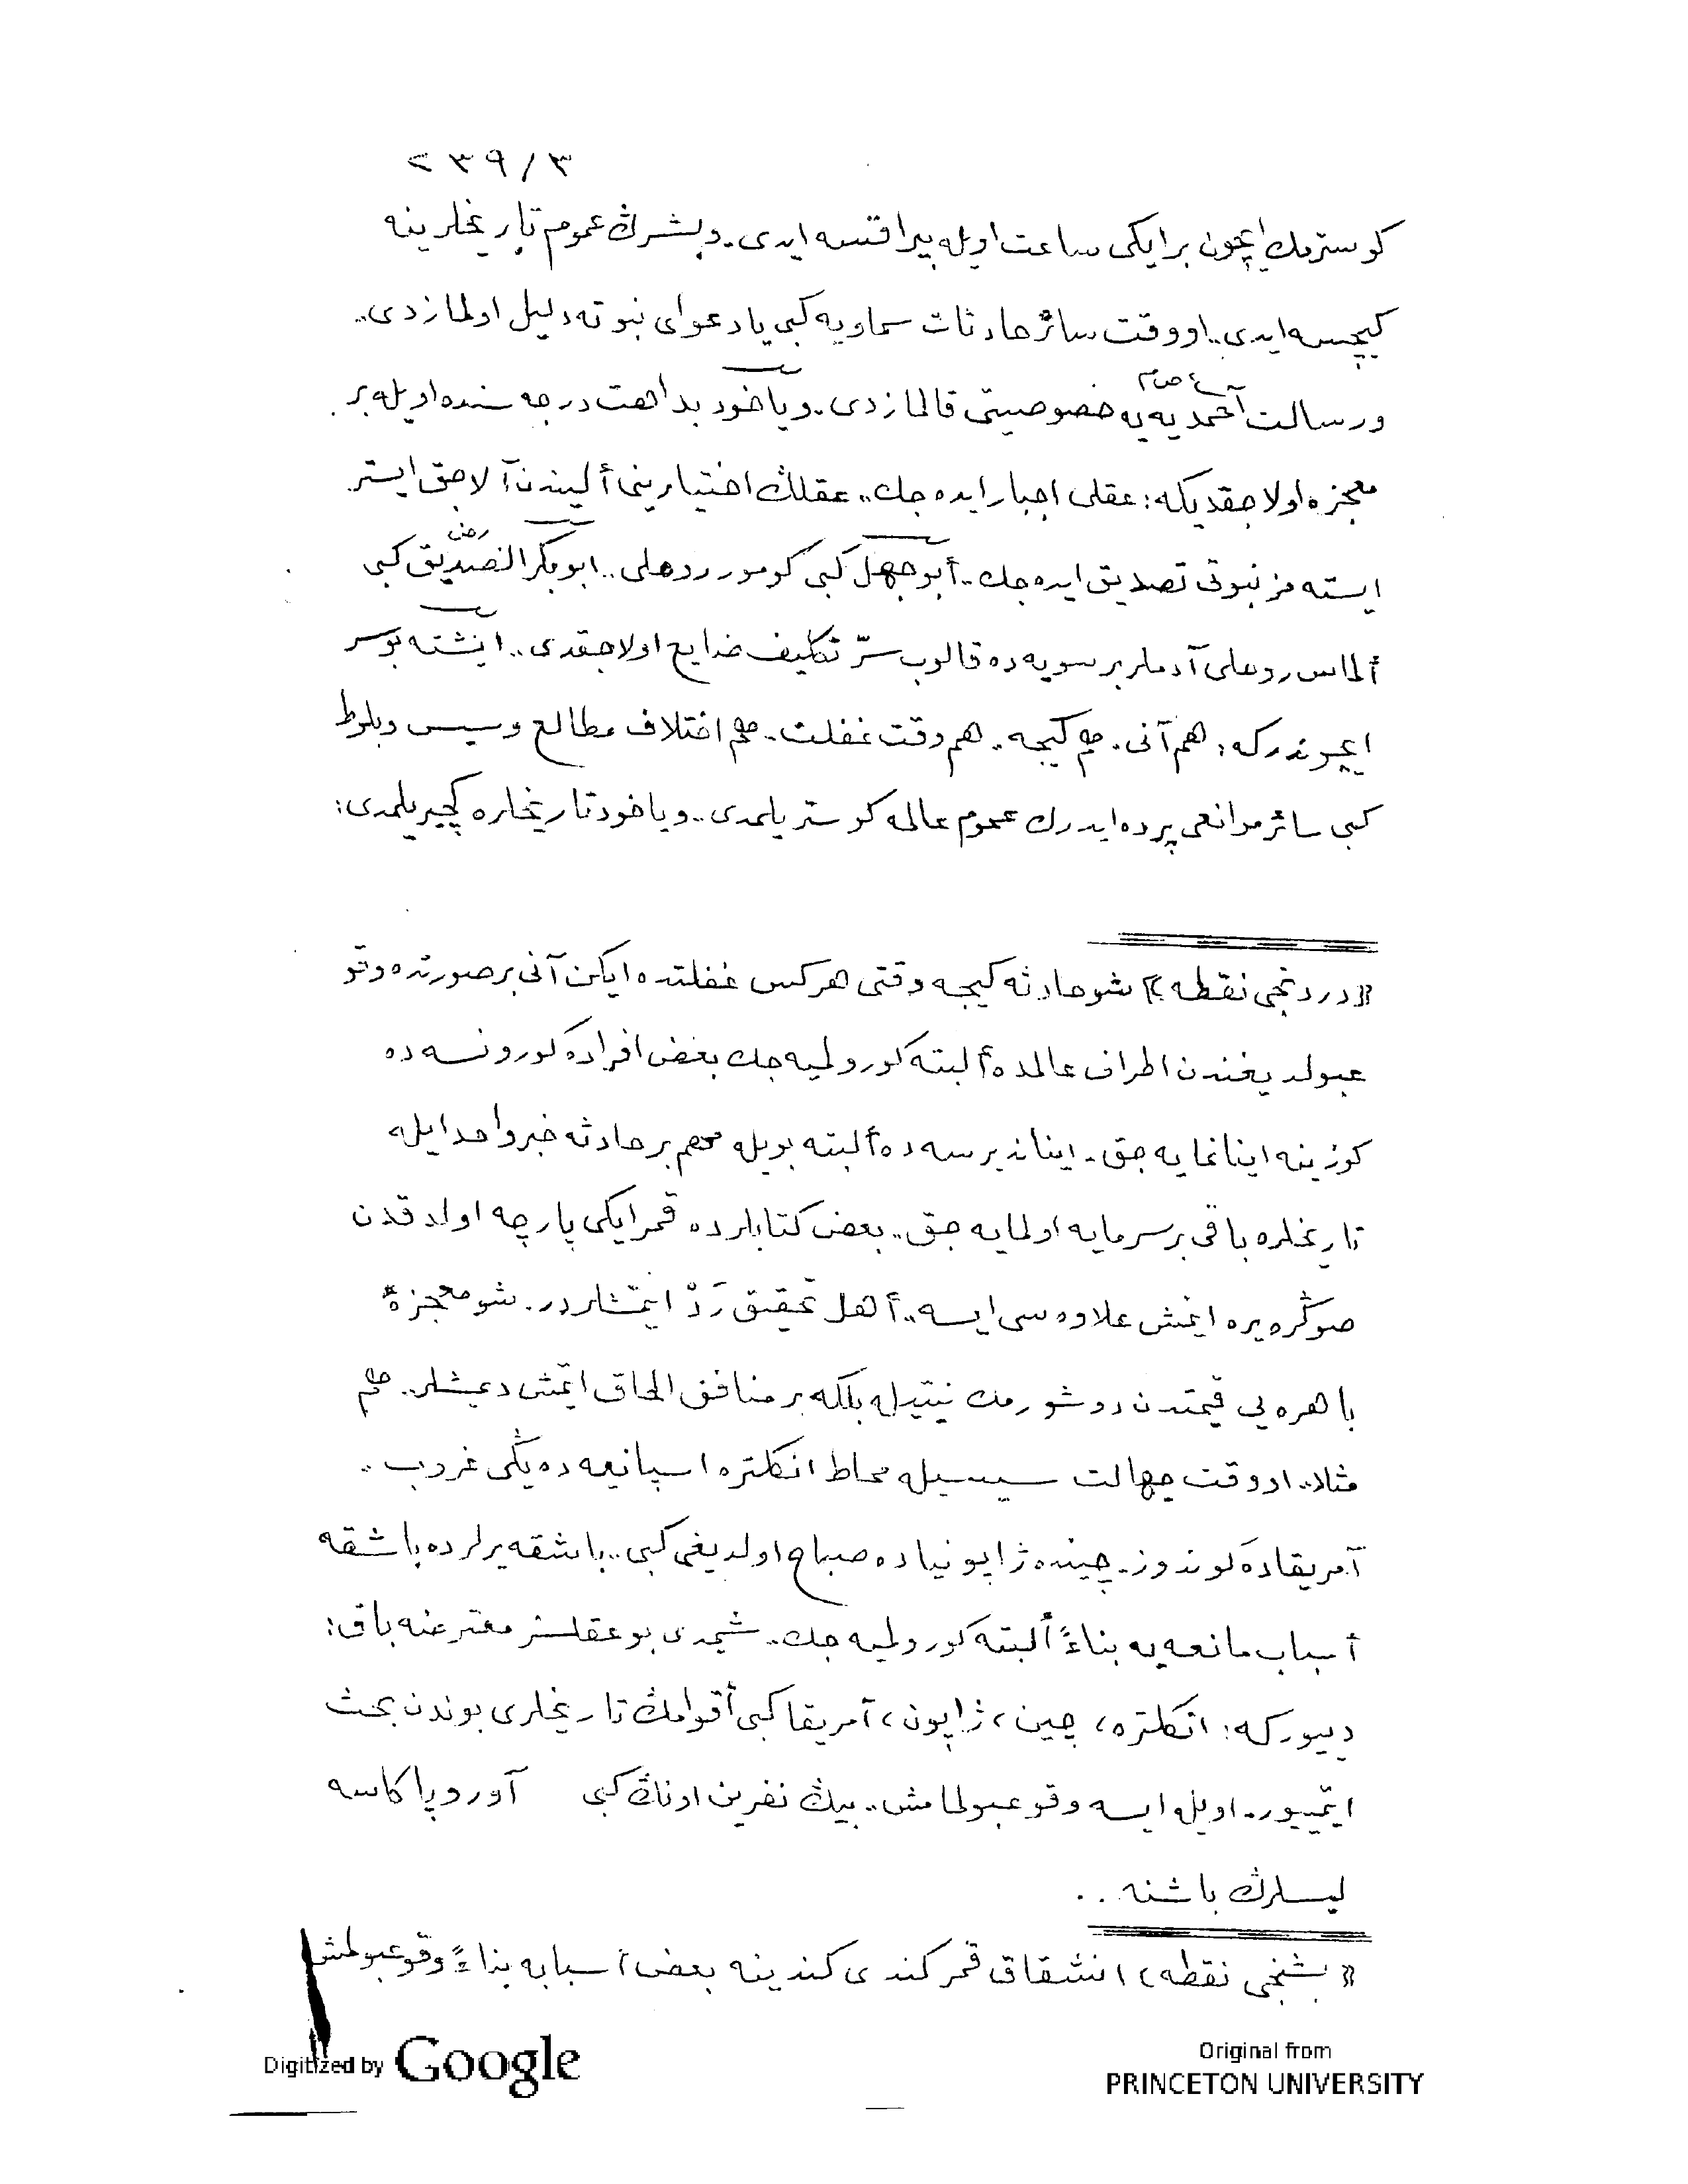 ٢٣٩/٣
كوسترمك ايچون بر ايكی ساعت اويله بيراقسه ايدی. و بشرڭ عموم تاريخلرينه
كيچسه ايدی.. او وقت سائر حادثات سماويه كبی يا دعوای نبوته دليل اولمازدی..
و رسالت أحمديه يه خصوصيتی قالمازدی. وياخود بداهت درجه سنده اويله بر
معجزه اولاجقديكه: عقلی اجبار ايده جك.. عقلڭ اختيارينی أليندن آلاجق ايستر
ايسته مز نبوتی تصديق ايده جك.. أبو جهل كبی كومور روحلی.. ابو بكر الصديق رض كبی
ألماس روحلی آدملر بر سويه ده قالوب سرّ تكليف ضايع اولاجقدی.. ايشته بو سر
ايچوندركه: هم آنی. هم كيجه. هم وقت غفلت. هم اختلاف مطالع و سيس و بلوط
كبی سائر موانعی پرده ايدرك عموم عالمه كوستريلمدی.. وياخود تاريخلره كچيريلمدی:
«دردنجی نقطه» شو حادثه كيجه وقتی هركس غفلتده ايكن آنی بر صورتده وقو
عبولديغندن اطراف عالمده ألبته كورولميه جك بعض افراده كورونسه ده
كوزينه اينانمايه جق. اينانديرسه ده ألبته بويله مهم بر حادثه خبر واحد ايله
تاريخلره باقی بر سرمايه اولمايه جق.. بعض كتابلرده قمر ايكی پارچه اولدقدن
صوڭره يره اينمش علاوه سی ايسه.. أهل تحقيق رَدْ ايتمشلردر. شو معجزهٔ
باهره يی قيمتدن دوشورمك نيتيله بلكه بر منافق الحاق ايتمش ديمشلر.. هم
مثلا.. او وقت جهالت سيسيله محاط انكلتره اسپانيه ده يڭی غروب..
آمريقاده كوندوز. چينده ژاپونياده صباح اولديغی كبی.. باشقه يرلرده باشقه
أسباب مانعه يه بناءً ألبته كورولميه جك.. شيمدی بو عقلسز معترضه باق:
دييوركه: انكلتره، چين، ژاپون، آمريقا كبی أقوامڭ تاريخلری بوندن بحث
ايتمييور. اويله ايسه وقوعبولمامش.. بيڭ نفرين اونڭ كبی آوروپا كاسه
ليسلرڭ باشنه ..
«بشنجی نقطه» انشقاق قمر كندی كندينه بعض أسبابه بناءً وقوعبولمش
Digitized by Google
Original from
PRINCETON UNIVERSITY